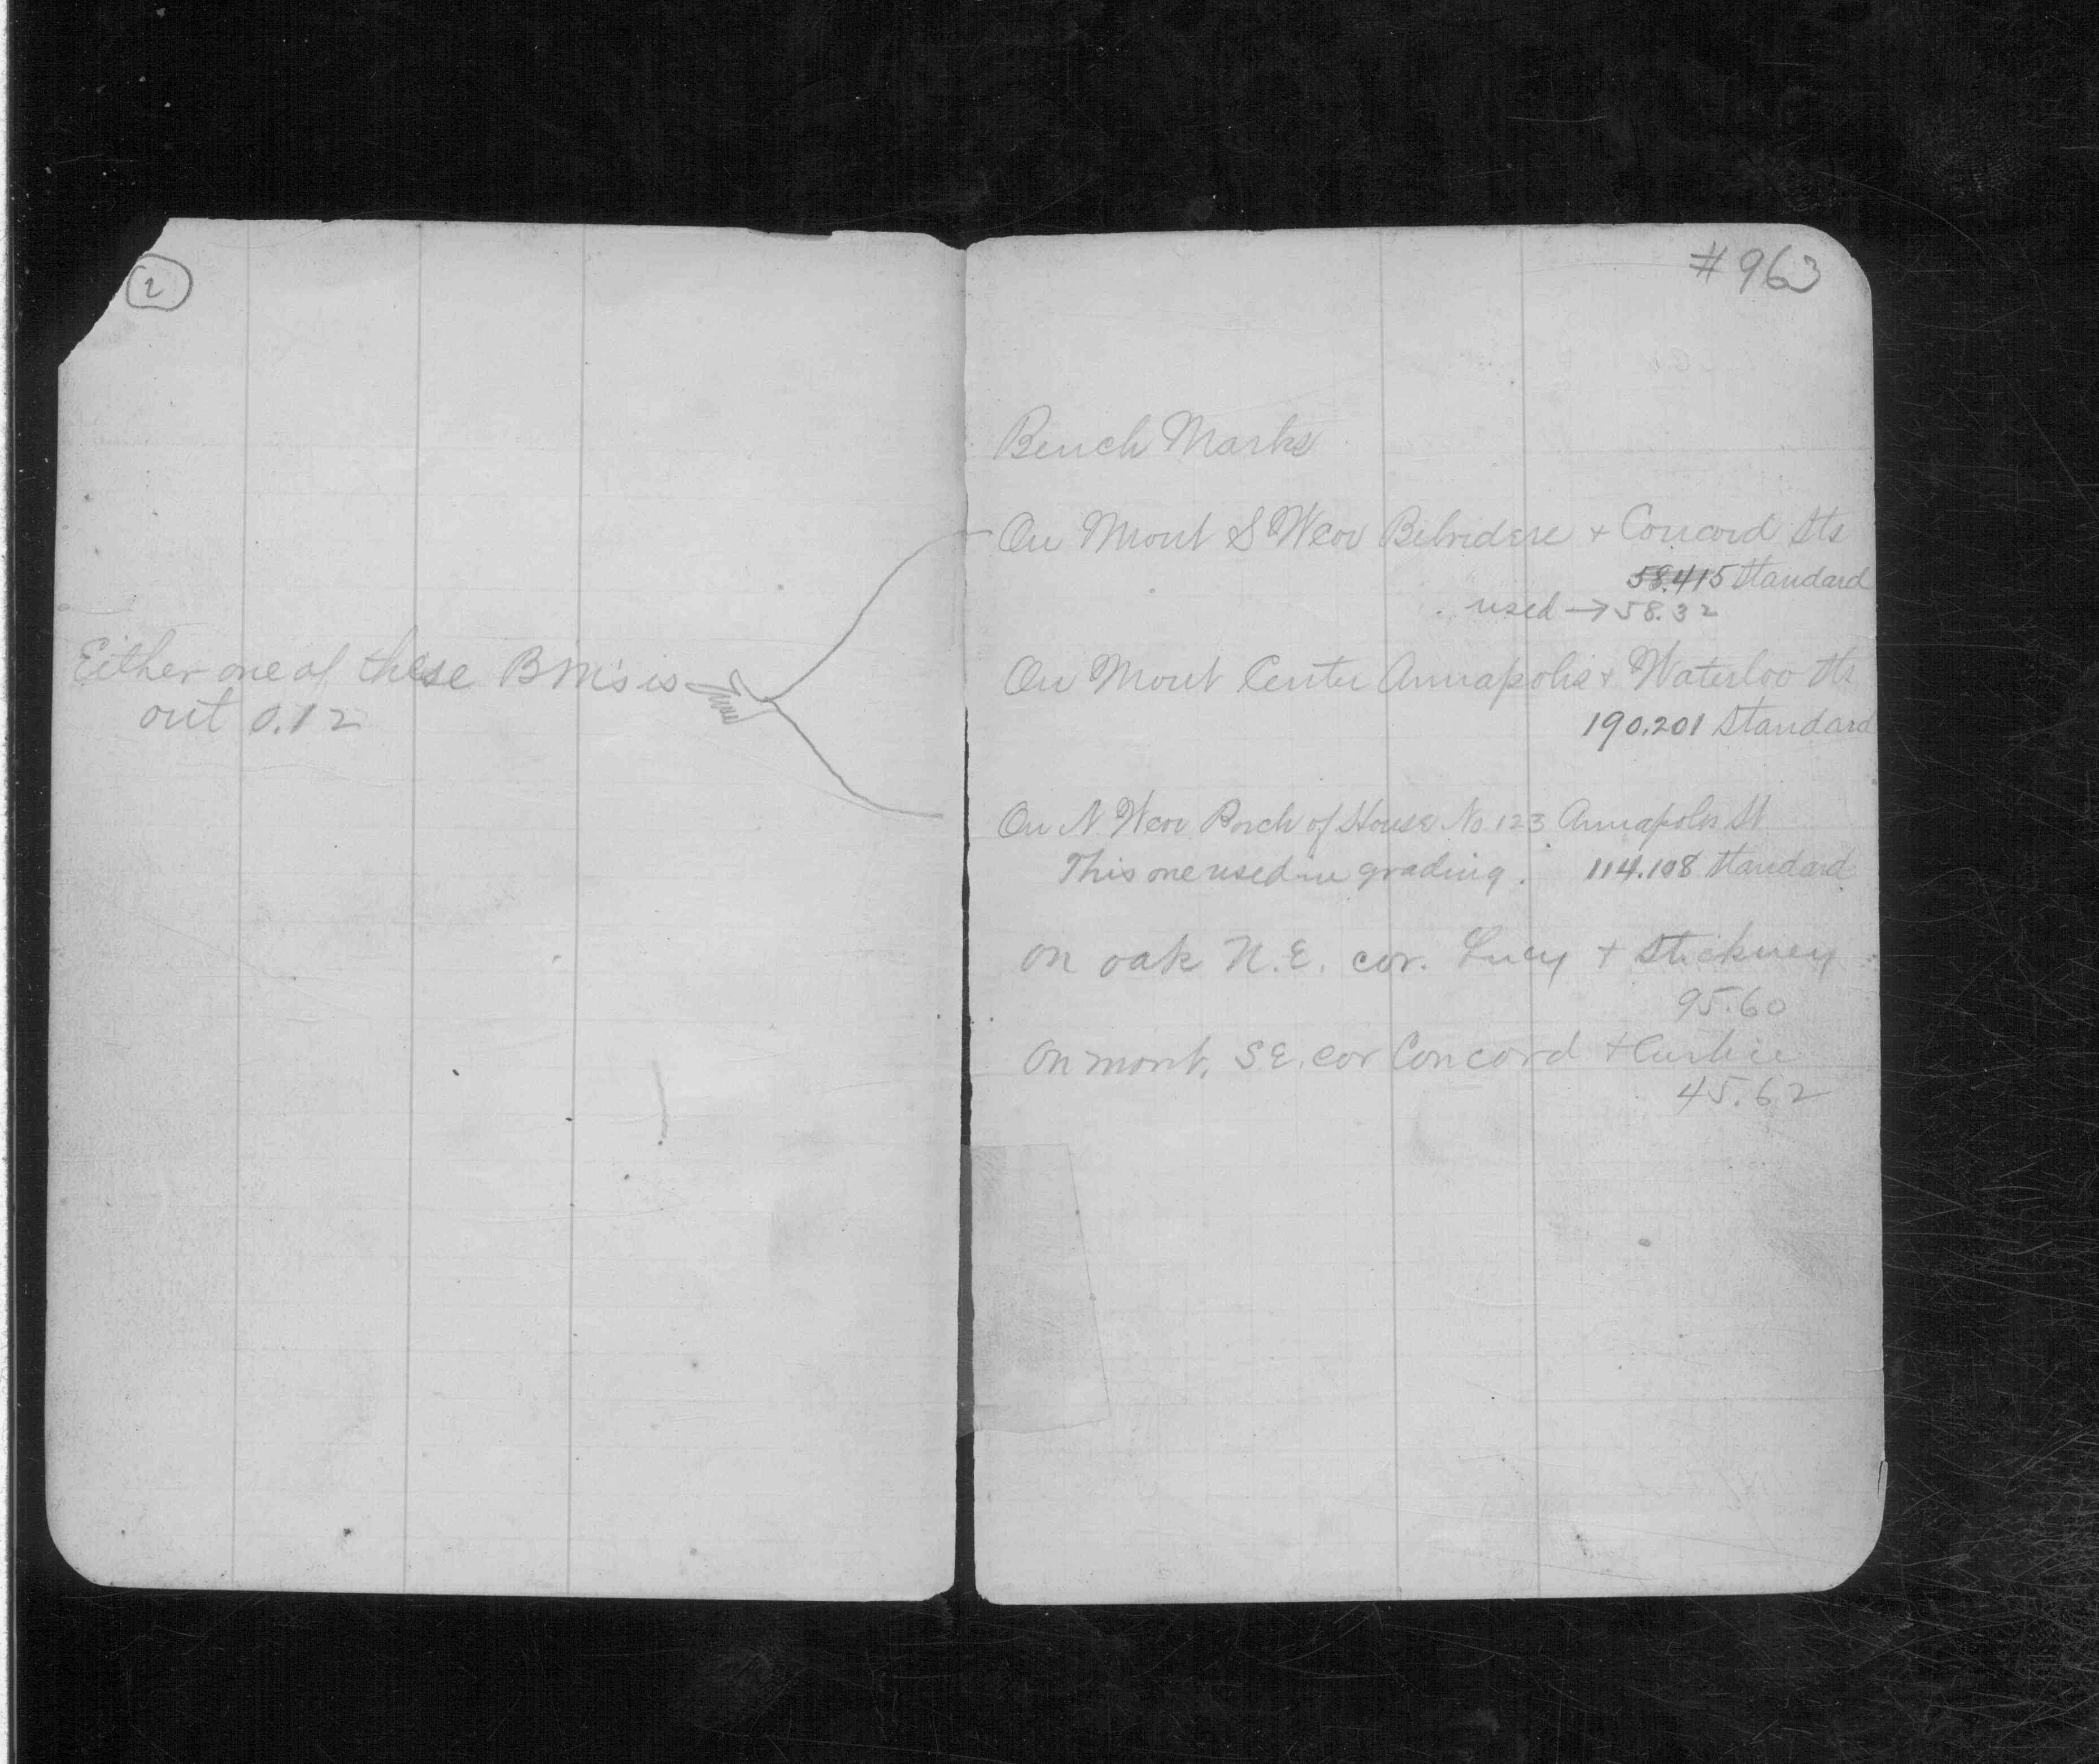 2
Either one of these BM's is
out 0.12
#963
Bench Marks
On Mont S W cor Belvidere + Concord Sts
58.415 Standard
used → 58.32
On Mont Center Annapolis & Waterloo Sts
190.201 Standard
On N W cor Porch of House No 123 Annapolis St
This one used in grading. 114.108 Standard
On oak N.E. cor. Lucy + Stickney
95.60
On mont. S E. cor Concord + Curtice
45.62